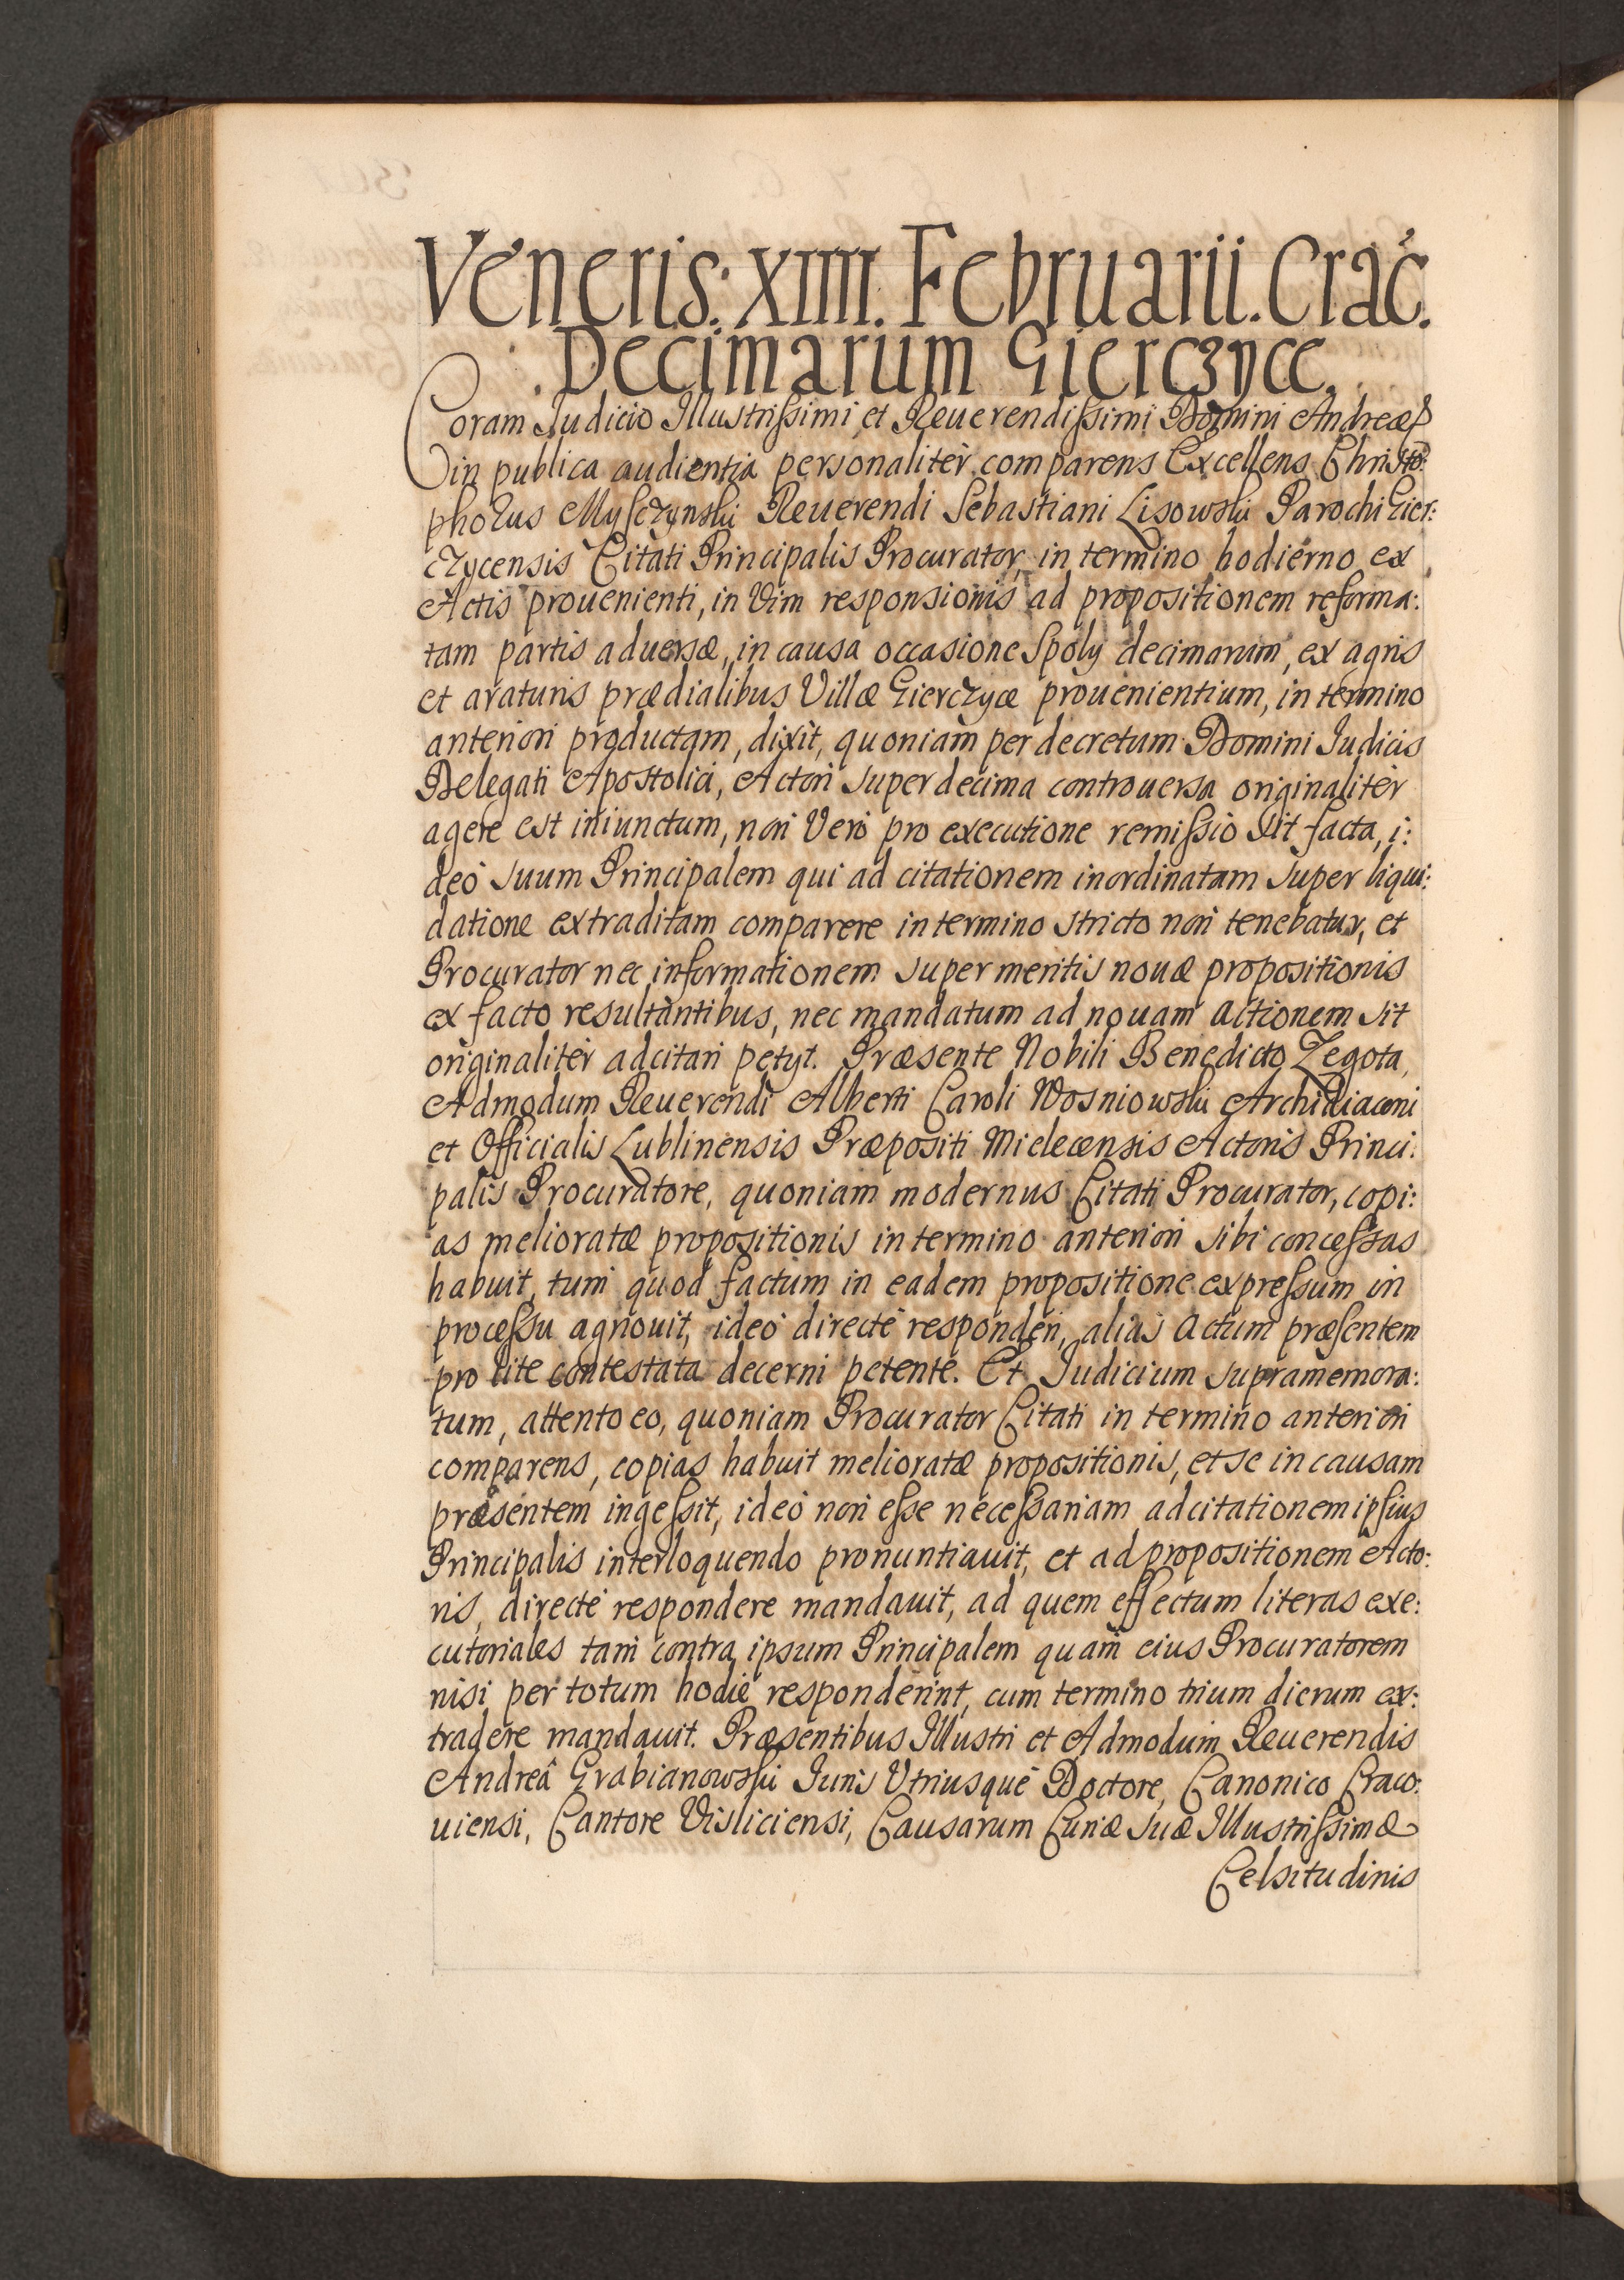 Veneris. XIIII. Februarii. Crac.
Decimarum Gierczyce.
Coram Judicio Illustrißimi et Reuerendißimi Domini Andreæ
in publica audientia personalitèr comparens Excellens Christo:
phorus Mysczynski Reuerendi Sebastiani Lisowski Parochi Gier:
czycensis Citati Principalis Procurator, in termino hodierno ex
Actis prouenienti, in Vim responsionis ad propositionem reforma:
tam partis aduersæ, in causa occasione Spoly decimarum, ex agris
et araturis prædialibus Villæ Gierczycæ prouenientium, in termino
anteriori productam, dixit, quoniam per decretum Domini Iudicis
Delegati Apostolici, Actori super decima controuersa originalitèr
agere est iniunctum, non Verò pro executione remißio sit facta, i:
deò suum Principalem qui ad citationem inordinatam super liqui:
datione extraditam comparere in termino stricto non tenebatur, et
Procurator nec informationem super meritis nouæ propositionis
ex facto resultantibus, nec mandatum ad nouam actionem sit
originalitèr adcitari petyt. Præsente Nobili Benedicto Zegota,
Admodum Reuerendi Alberti Caroli Wosniowski Archidiaconi
et Officialis Lublinensis Præpositi Mielecensis Actoris Princi:
palis Procuratore, quoniam modernus Citati Procurator, copi:
as melioratæ propositionis in termino anteriori sibi conceßas
habuit, tum quod factum in eadem propositione expreßum in
proceßu agnouit, ideò directè responderi, aliàs actum præsentem
pro lite contestata decerni petente. Et Judicium supramemora:
tum, attento eo, quoniam Procurator Citati in termino anteriori
comparens, copias habuit melioratæ propositionis, et se in causam
præsentem ingeßit, ideò non eße neceßariam adcitationem ipsius
Principalis interloquendo pronuntiauit, et ad propositionem Acto:
ris, directè respondere mandauit, ad quem effectum literas exe:
cutoriales tam contra ipsum Principalem quam eius Procuratorem
nisi per totum hodie responderint, cum termino trium dierum ex:
tradere mandauit. Præsentibus Illustri et Admodum Reuerendis
Andreâ Grabianowski Iuris Vtriusque Doctore, Canonico Craco:
uiensi, Cantore Visliciensi, Causarum Curiæ suæ Illustrißimæ
Celsitudinis